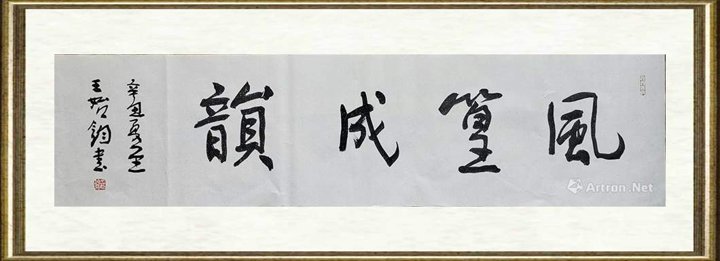 風篁成韻
辛丑夏至
王鈞書
Artron.Net